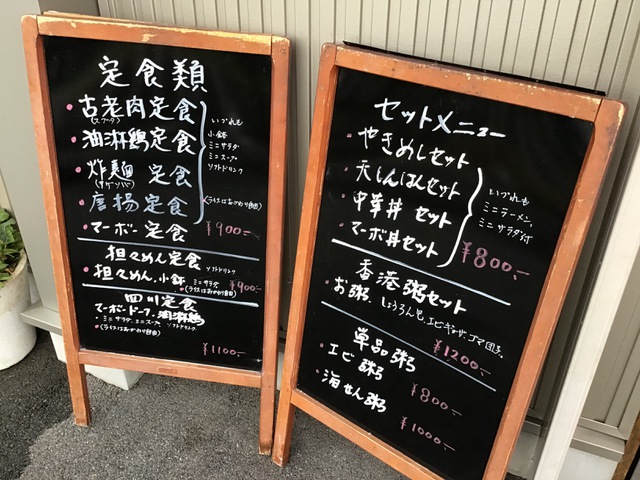 定食類
古老肉定食
(スブタ)
油淋鶏定食
炸麺 定食
唐揚定食
マーボー定食
いづれも
小鉢
ミニサラダ
ミニスープ
ソフトドリンク
(ライスはおかわり自由)
¥900-
担々めん定食 ソフトドリンク
担々めん.小鉢 ミニサラダ
(ライスはおかわり自由)
¥900-
四川定食
マーボードーフ.油淋鶏
ミニサラダ.ミニスープ ソフトドリンク
(ライスはおかわり自由)
¥1100-
セットメニュー
やきめしセット
天しんはんセット
中華丼 セット
マーボ丼セット
いづれも
ミニラーメン.
ミニサラダ付
¥800-
香港粥セット
お粥.しょうろんぽ.エビギョーザ.ゴマ団子
¥1200-
単品粥
エビ粥
¥800-
海せん粥
¥1000-